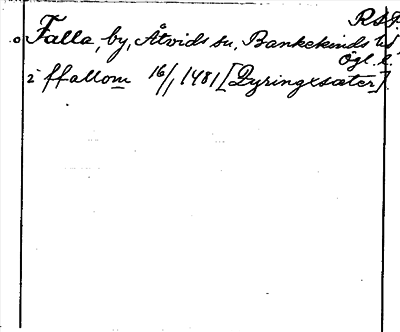 RSP
Falla, by, Åtvids sn, Bankekinds hd
Ögl. l.
i ffallom 16/1 1481 [Dyringxsæter].